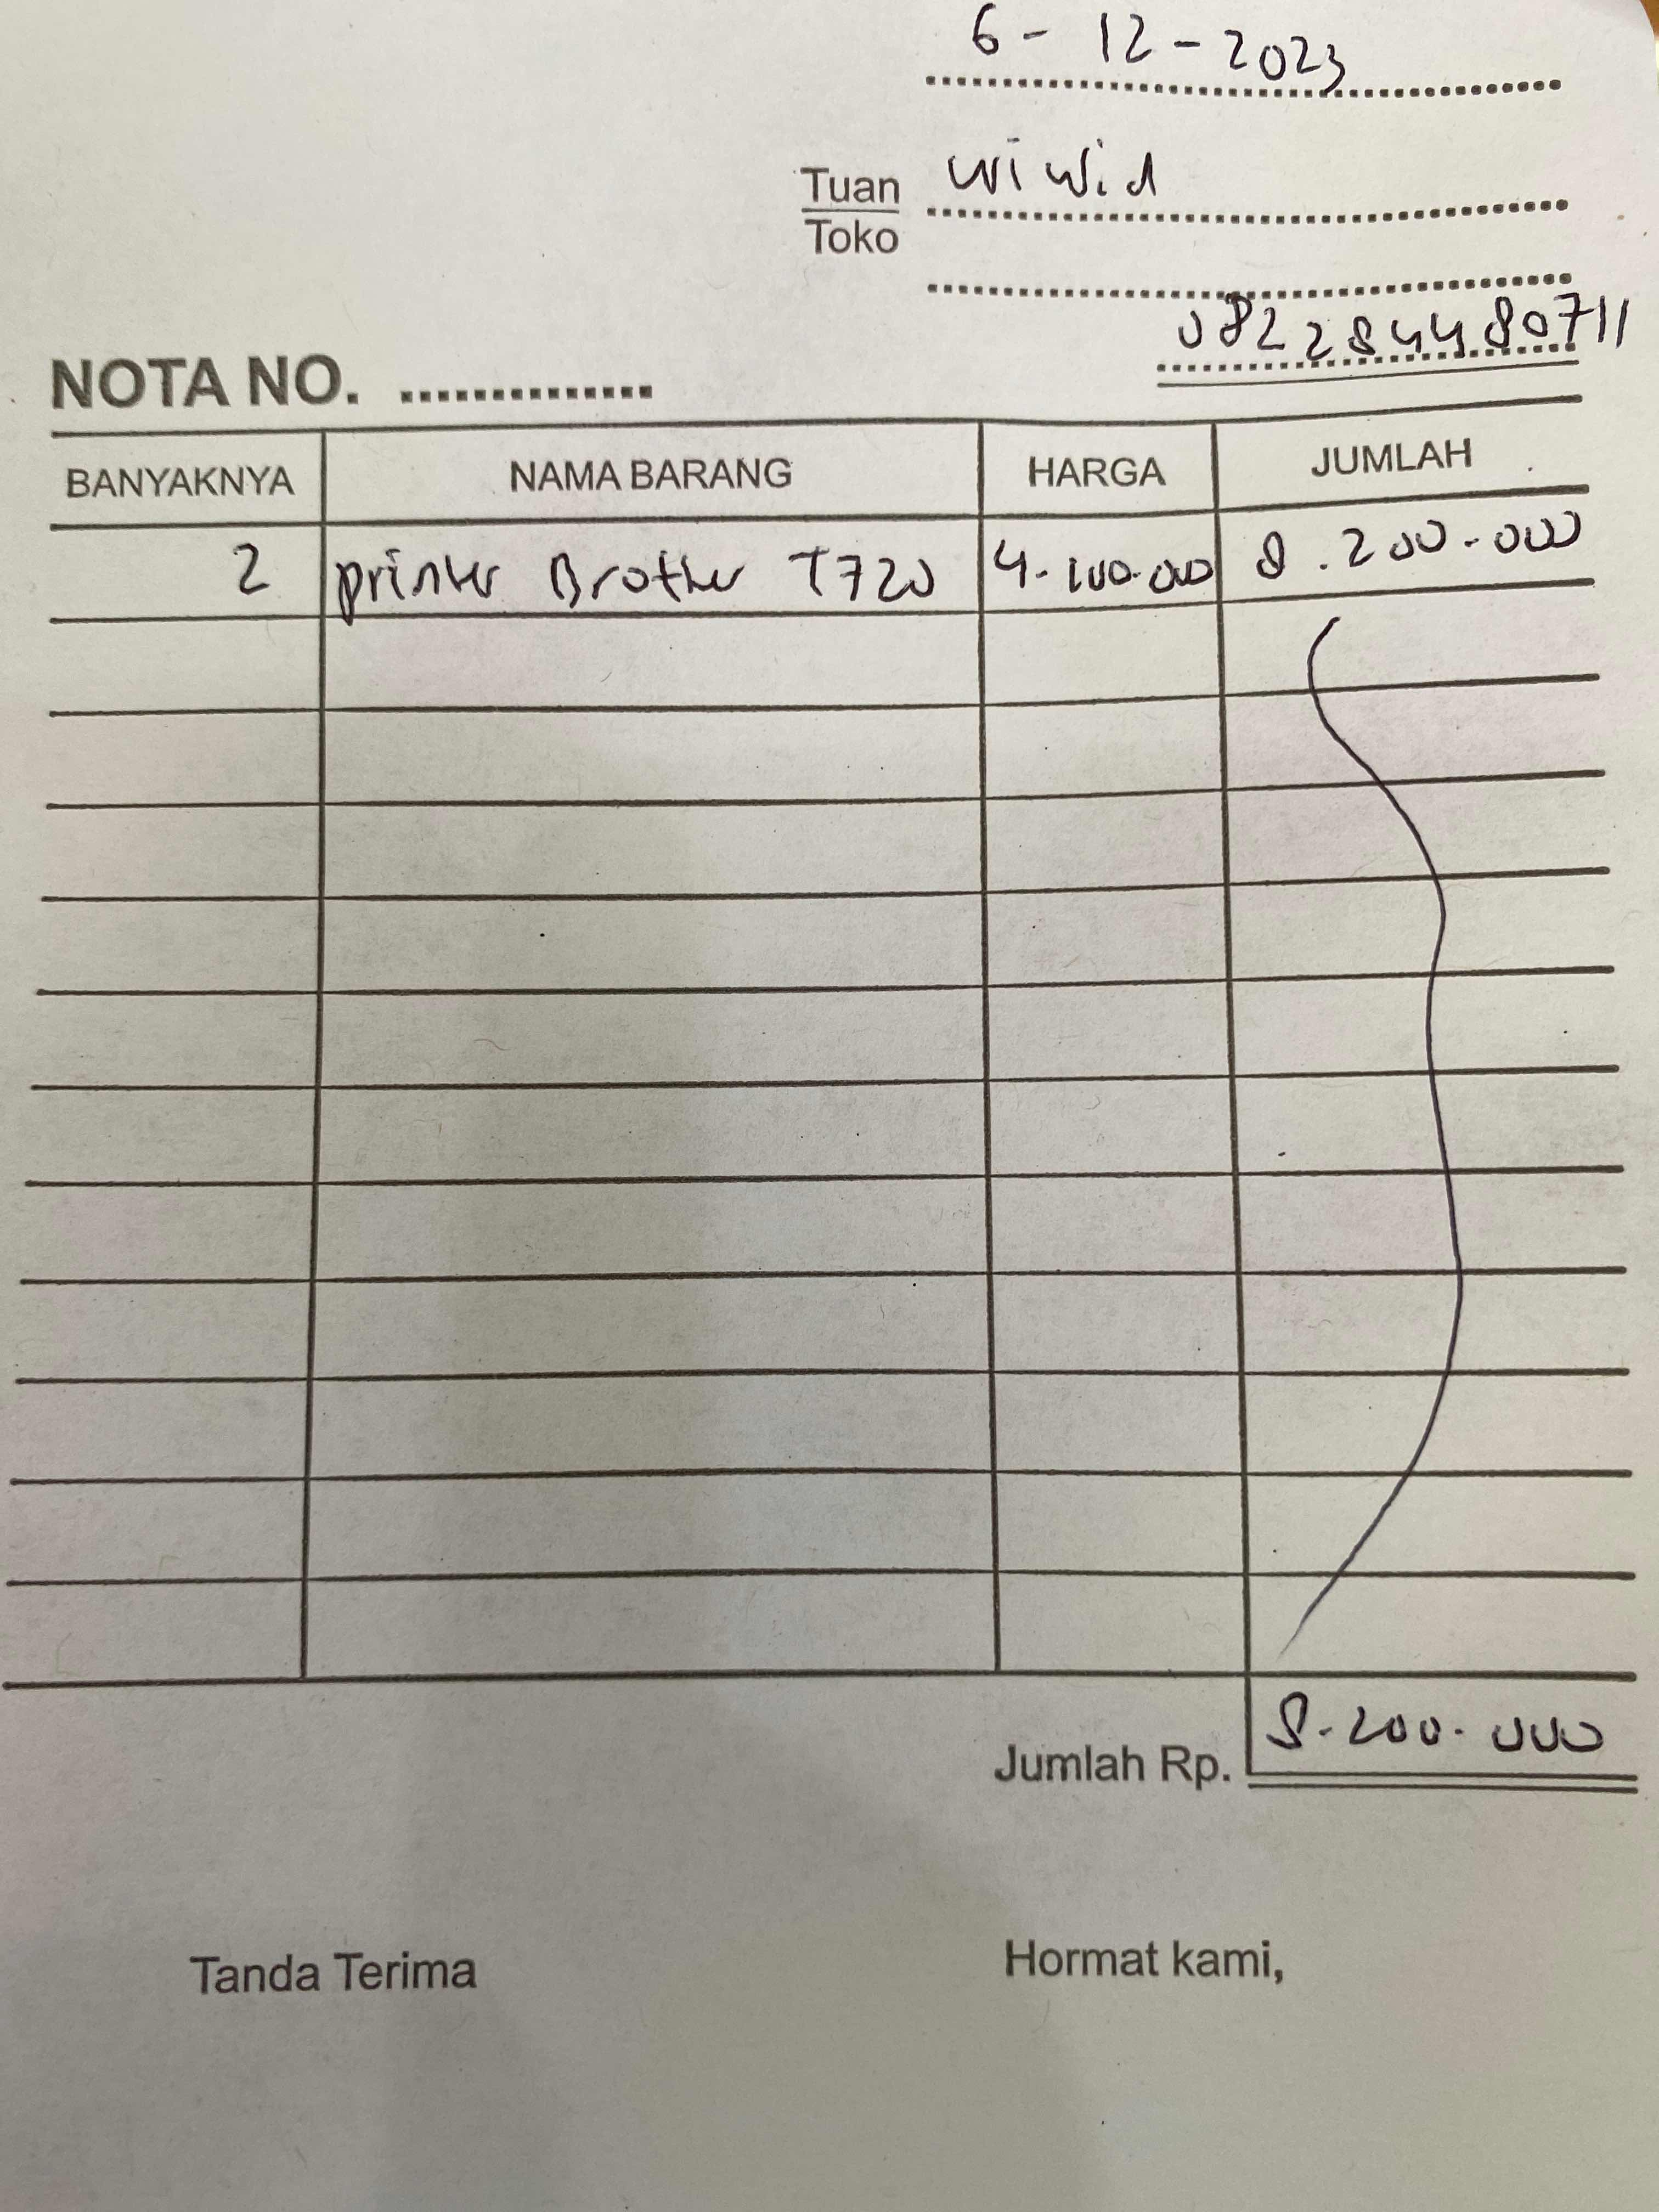 6 - 12 - 2023
Tuan wiwid
Toko
082284480711
NOTA NO. ..............
BANYAKNYA NAMA BARANG HARGA JUMLAH
2 printer Brother T720 4.100.000 8.200.000
Jumlah Rp. 8.200.000
Tanda Terima Hormat kami,